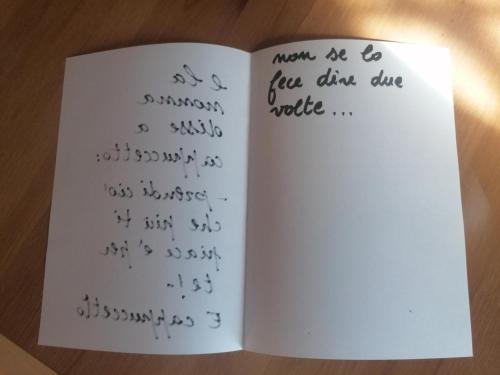 e la
nonna
disse a
cappuccetto:
- prendi cio'
che più ti
piace e' per
te! -
E cappuccetto
non se lo
fece dire due
volte...